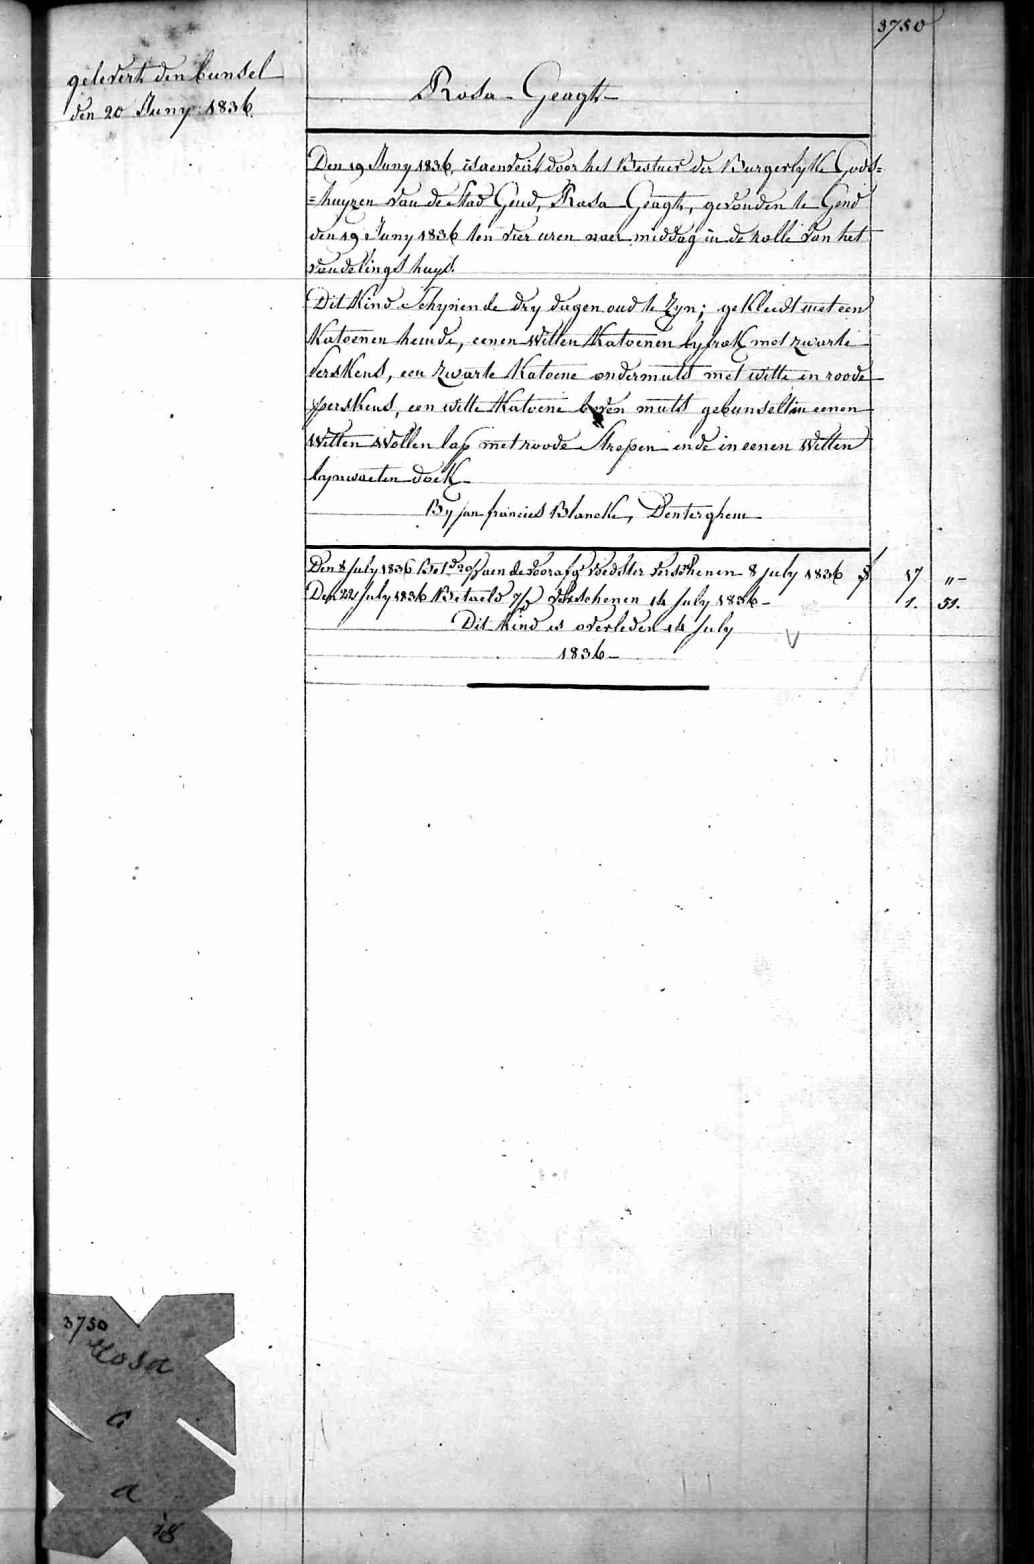 3750
gelevert den bunsel
den 20 Juny 1836.
Rosa Geagh
Den 19 Juny 1836, is aenveirt door het Bestuer der Burgerlyke Gods=
=huyzen van de Stad Gend, Rosa Geagh, gevonden te Gend
den 19 Juny 1836 ten vier uren naer middag in de rolle van het
vondelings huys.
Dit Kind schynende dry dagen oud te zyn; gekleedt met een
Katoenen hemde, eenen witten Katoenen lyfrok met zwarte
perskens, een zwarte Katoene ondermuts met witte en roode
perskens, een witte Katoene boven muts gebunselt in eenen
witten wollen lap met roode strepen ende in eenen witten
lynwaeten doek
By jan francies Blancke, Denterghem
Den 8 July 1836 aen de voedster verschenen 8 July 1836 17 "
Den 22 July 1836 Betaeld verschenen 14 July 1836 1. 51.
Dit Kind is overleden 14 July
1836
3750
Rosa
G
a
18